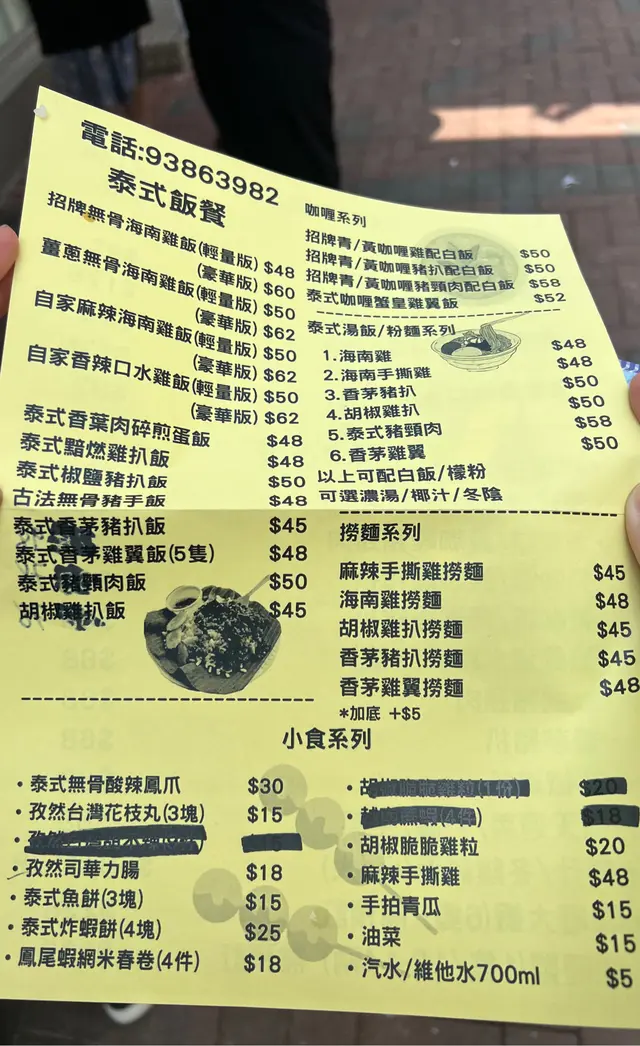 電話:93863982
泰式飯餐
招牌無骨海南雞飯(輕量版) $48
(豪華版) $60
薑蔥無骨海南雞飯(輕量版) $50
(豪華版) $62
自家麻辣海南雞飯(輕量版) $50
(豪華版) $62
自家香辣口水雞飯(輕量版) $50
(豪華版) $62
泰式香葉肉碎煎蛋飯 $48
泰式黯燃雞扒飯 $48
泰式椒鹽豬扒飯 $50
古法無骨豬手飯 $48
泰式香茅豬扒飯 $45
泰式香茅雞翼飯(5隻) $48
泰式豬頸肉飯 $50
胡椒雞扒飯 $45
咖喱系列
招牌青/黃咖喱雞配白飯 $50
招牌青/黃咖喱豬扒配白飯 $50
招牌青/黃咖喱豬頸肉配白飯 $58
泰式咖喱蟹皇雞翼飯 $52
泰式湯飯/粉麵系列
1.海南雞 $48
2.海南手撕雞 $48
3.香茅豬扒 $50
4.胡椒雞扒 $50
5.泰式豬頸肉 $58
6.香茅雞翼 $50
以上可配白飯/檬粉
可選濃湯/椰汁/冬陰
撈麵系列
麻辣手撕雞撈麵 $45
海南雞撈麵 $48
胡椒雞扒撈麵 $45
香茅豬扒撈麵 $45
香茅雞翼撈麵 $48
*加底 +$5
小食系列
・泰式無骨酸辣鳳爪 $30
・孜然台灣花枝丸(3塊) $15
・孜然司華力腸 $18
・泰式魚餅(3塊) $15
・泰式炸蝦餅(4塊) $25
・鳳尾蝦網米春卷(4件) $18
・胡椒脆脆雞粒(1份) $20
(4件) $18
・胡椒脆脆雞粒 $20
・麻辣手撕雞 $48
・手拍青瓜 $15
・油菜 $15
・汽水/維他水700ml $5